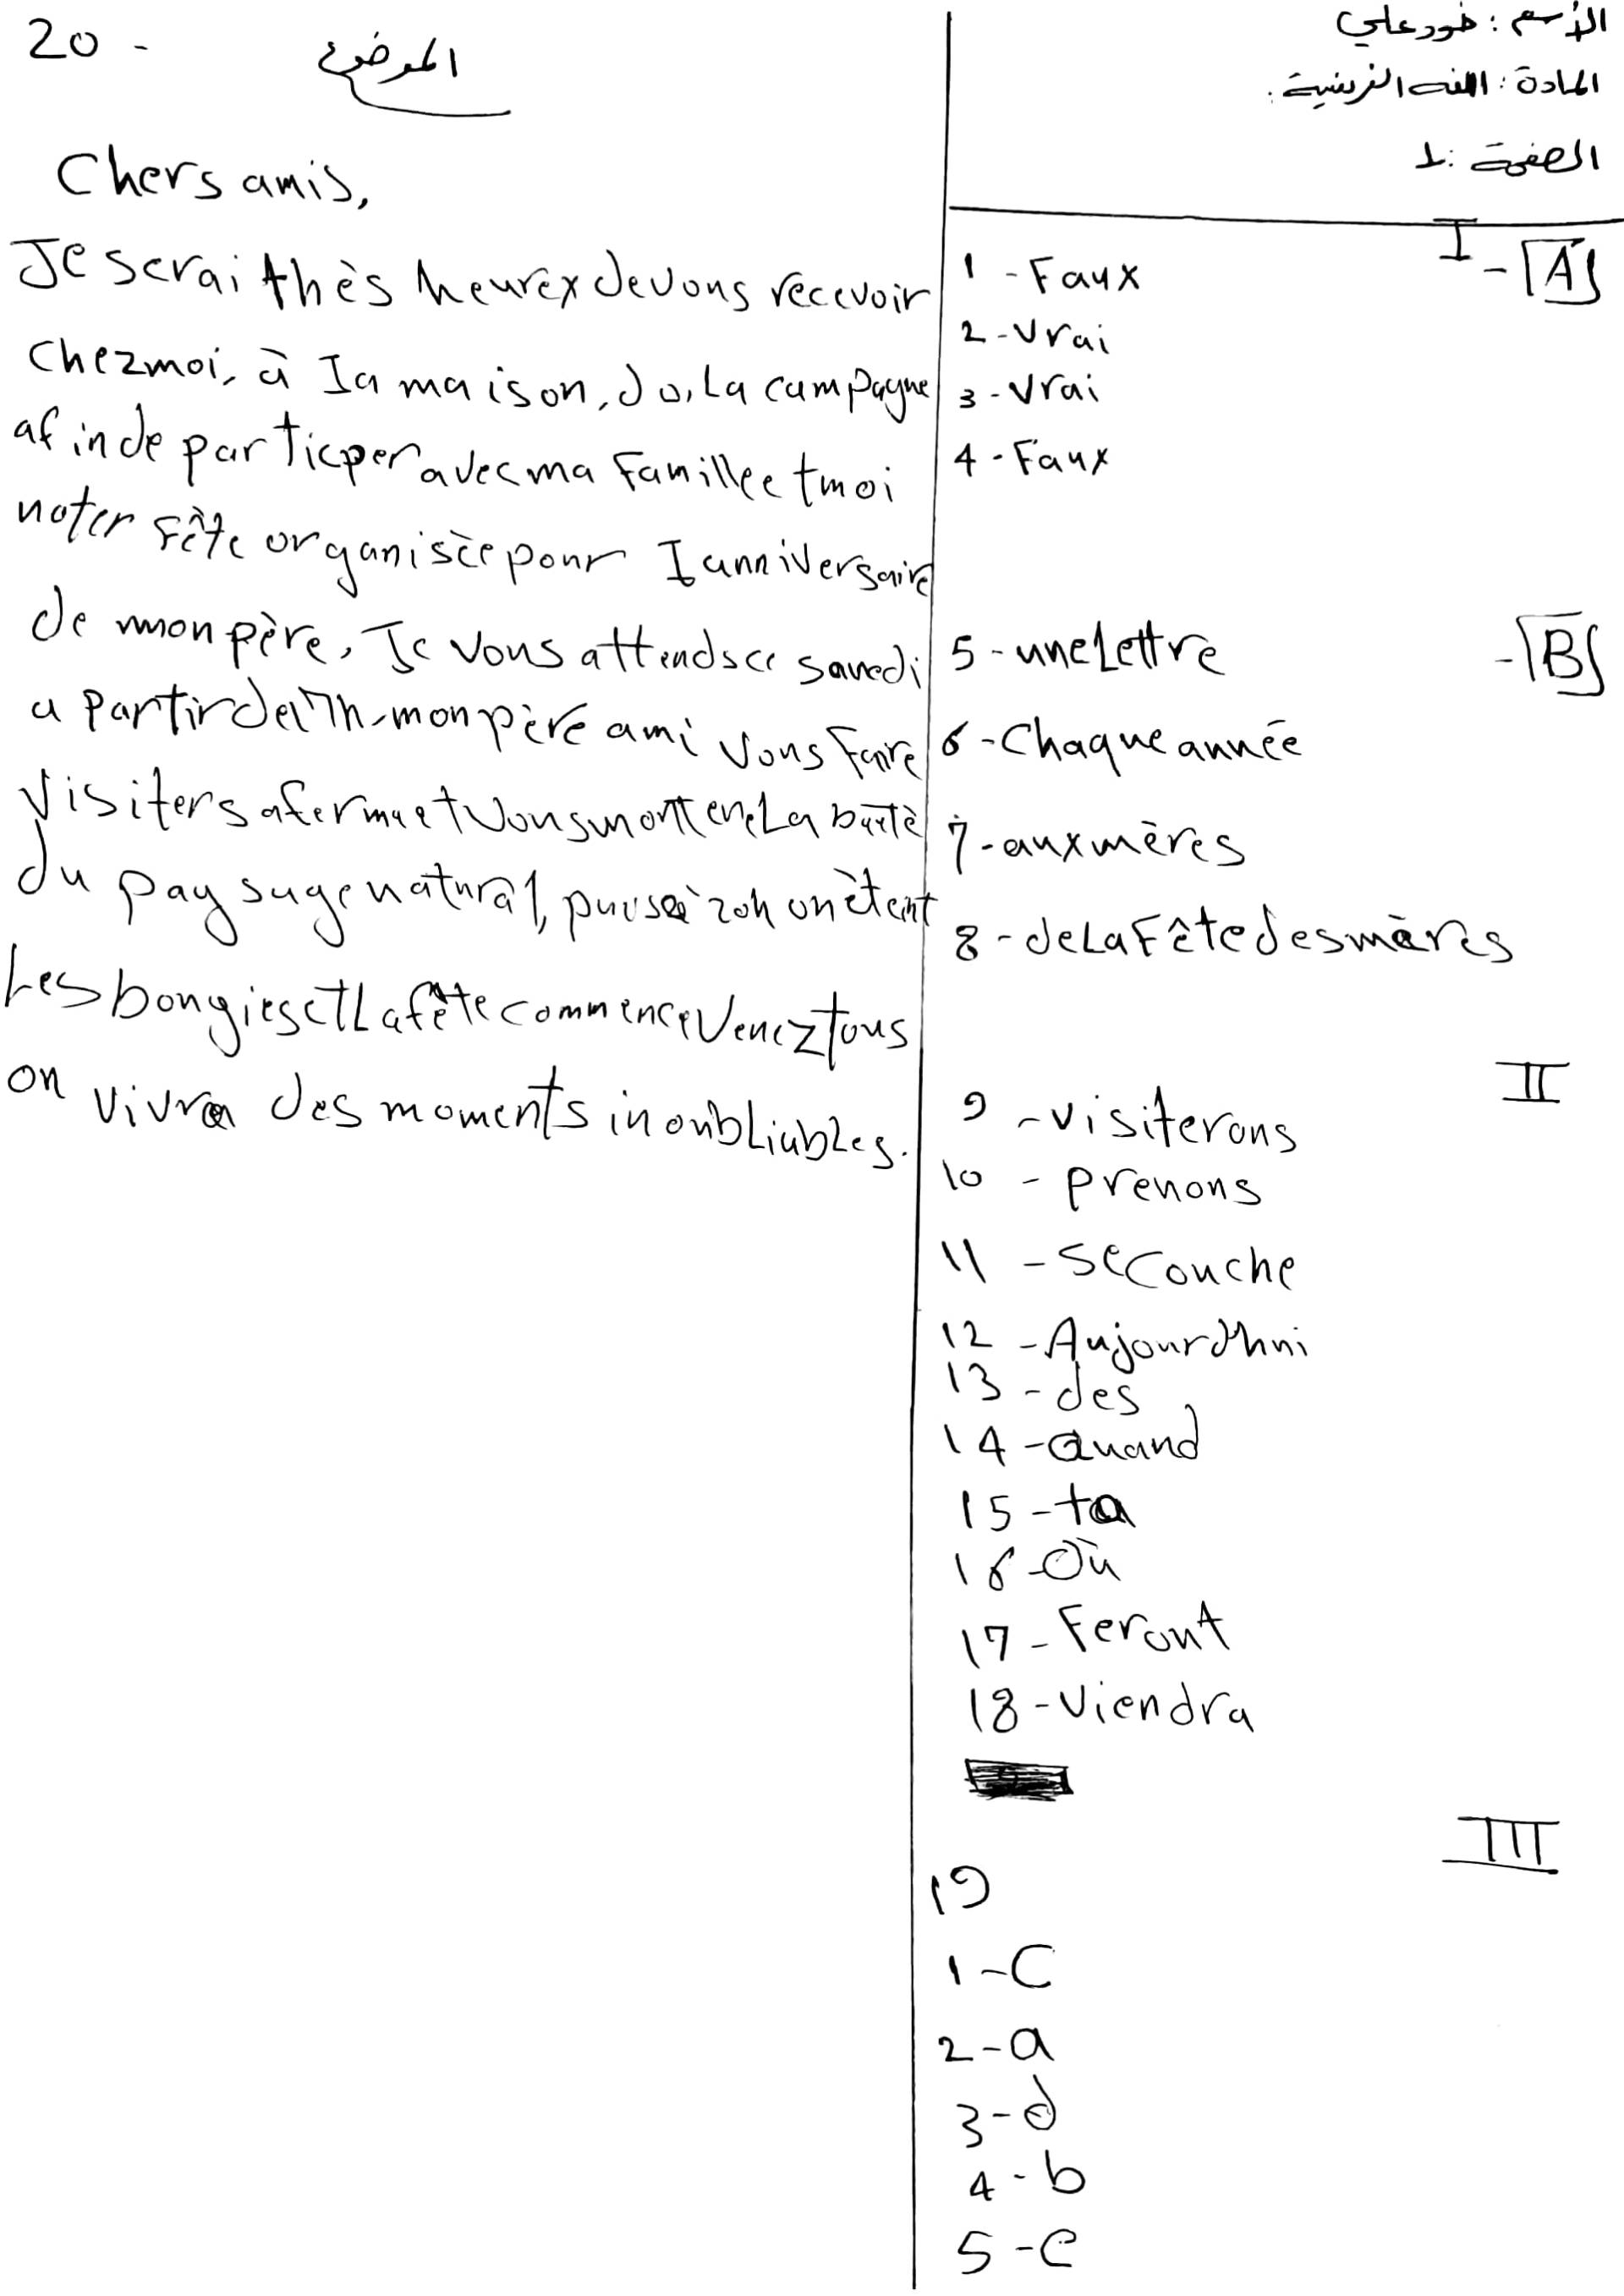 الأسم : خود علي
المادة : اللغه الفرنسية :
الصفحة : 1
I - A
1 - Faux
2 - Vrai
3 - Vrai
4 - Faux
- B
5 - une Lettre
6 - Chaque année
7 - aux mères
8 - de La Fête des mères
II
9 - visiterons
10 - prenons
11 - se couche
12 - Aujourdhui
13 - des
14 - Quand
15 - ta
16 - Où
17 - Feront
18 - Viendra
III
19
1 - C
2 - a
3 - d
4 - b
5 - e
20 - الموضوع
Chers amis,
Je serai thès heurex de vous recevoir
chez moi, à la maison, La campagne
afin de particper avec ma Famille et moi
noter Fête organisèe pour Ianniversaire
de mon père, Je vous attends ce samedi
a partir de mon père ami vous Faire
visiters a ferme et Vous La
du paysuge natural, on ètent
Les bougies et La fête commence Venez tous
on vivra des moments inoubLiables.